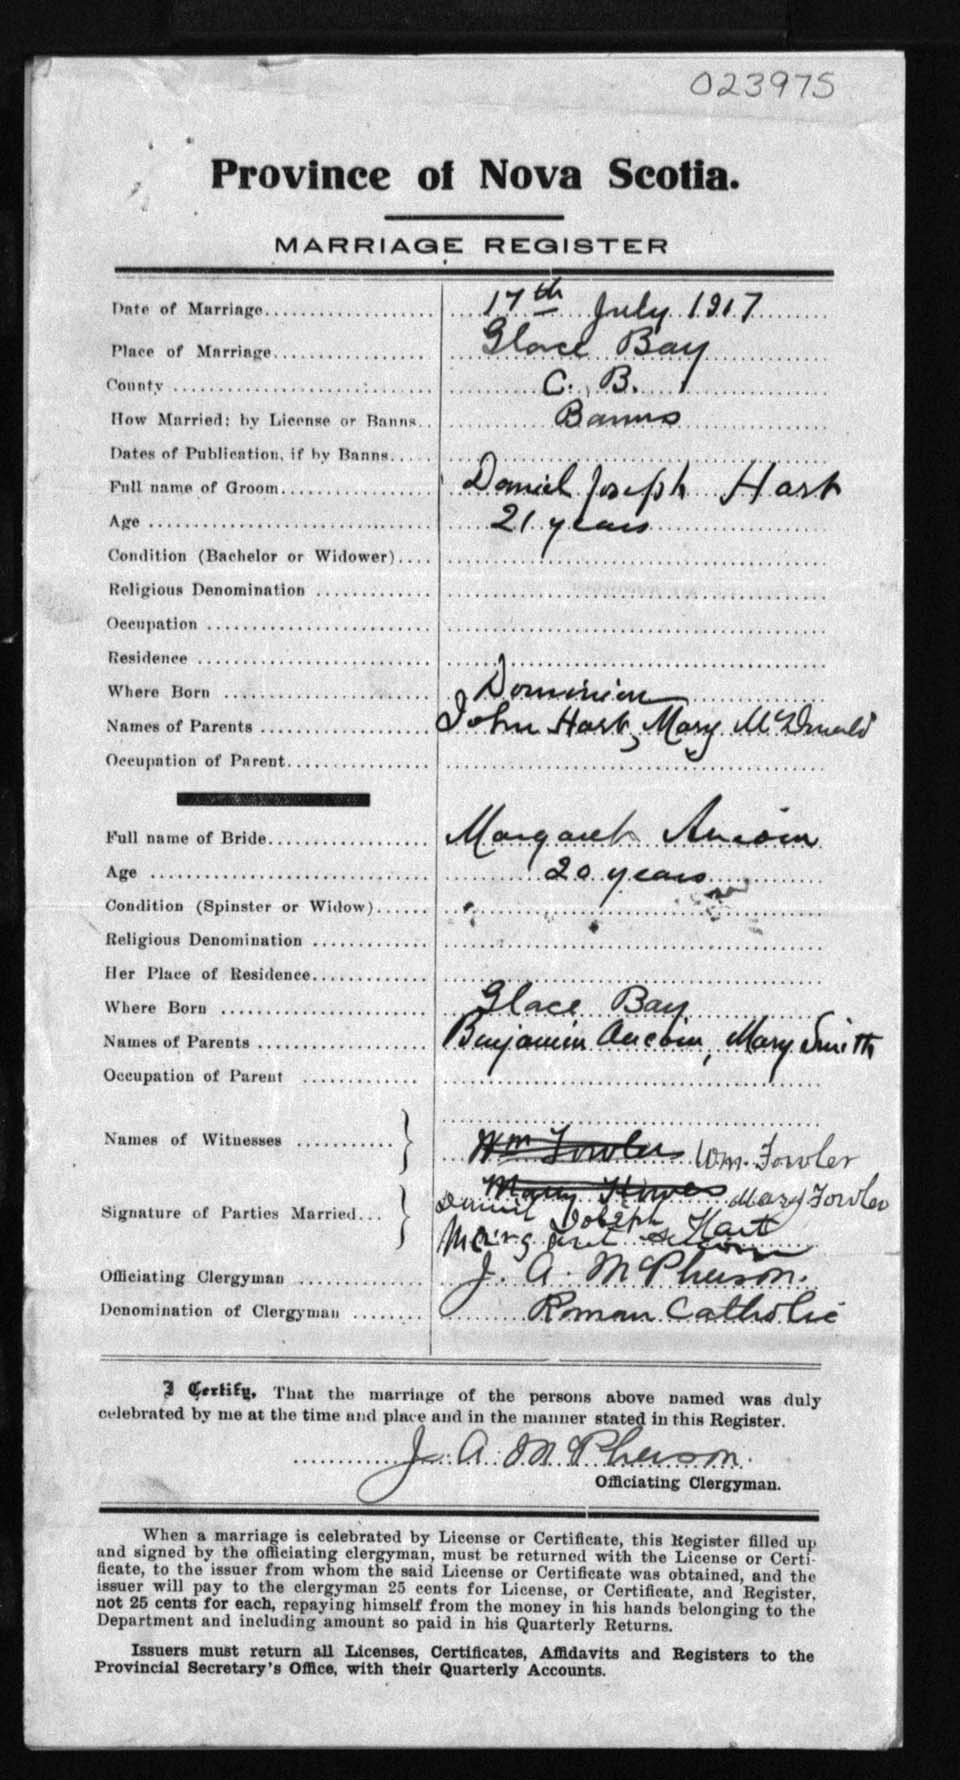 023975
Province of Nova Scotia.
MARRIAGE REGISTER
Date of Marriage.................... 17th July 1917
Place of Marriage................... Glace Bay
County .............................. C. B.
How Married: by License or Banns.. Banns
Dates of Publication, if by Banns.....
Full name of Groom.................. Daniel Joseph Hart
Age ................................. 21 years
Condition (Bachelor or Widower)....
Religious Denomination .............
Occupation ..........................
Residence ...........................
Where Born ......................... Dominion
Names of Parents ................... John Hart, Mary McDonald
Occupation of Parent................
Full name of Bride.................. Margaret Aucoin
Age ................................. 20 years
Condition (Spinster or Widow)......
Religious Denomination .............
Her Place of Residence..............
Where Born ......................... Glace Bay
Names of Parents ................... Benjamin Aucoin, Mary Smith
Occupation of Parent .............
Names of Witnesses ........... Wm Fowler Wm. Fowler
Mary Howes Mary Fowler
Signature of Parties Married... Daniel Joseph Hart
Margaret Aucoin
Officiating Clergyman .............. J. A. McPherson.
Denomination of Clergyman ........ Roman Catholic
I Certify, That the marriage of the persons above named was duly
celebrated by me at the time and place and in the manner stated in this Register.
J. A. McPherson.
Officiating Clergyman.
When a marriage is celebrated by License or Certificate, this Register filled up
and signed by the officiating clergyman, must be returned with the License or Certi-
ficate, to the issuer from whom the said License or Certificate was obtained, and the
issuer will pay to the clergyman 25 cents for License, or Certificate, and Register,
not 25 cents for each, repaying himself from the money in his hands belonging to the
Department and including amount so paid in his Quarterly Returns.
Issuers must return all Licenses, Certificates, Affidavits and Registers to the
Provincial Secretary's Office, with their Quarterly Accounts.